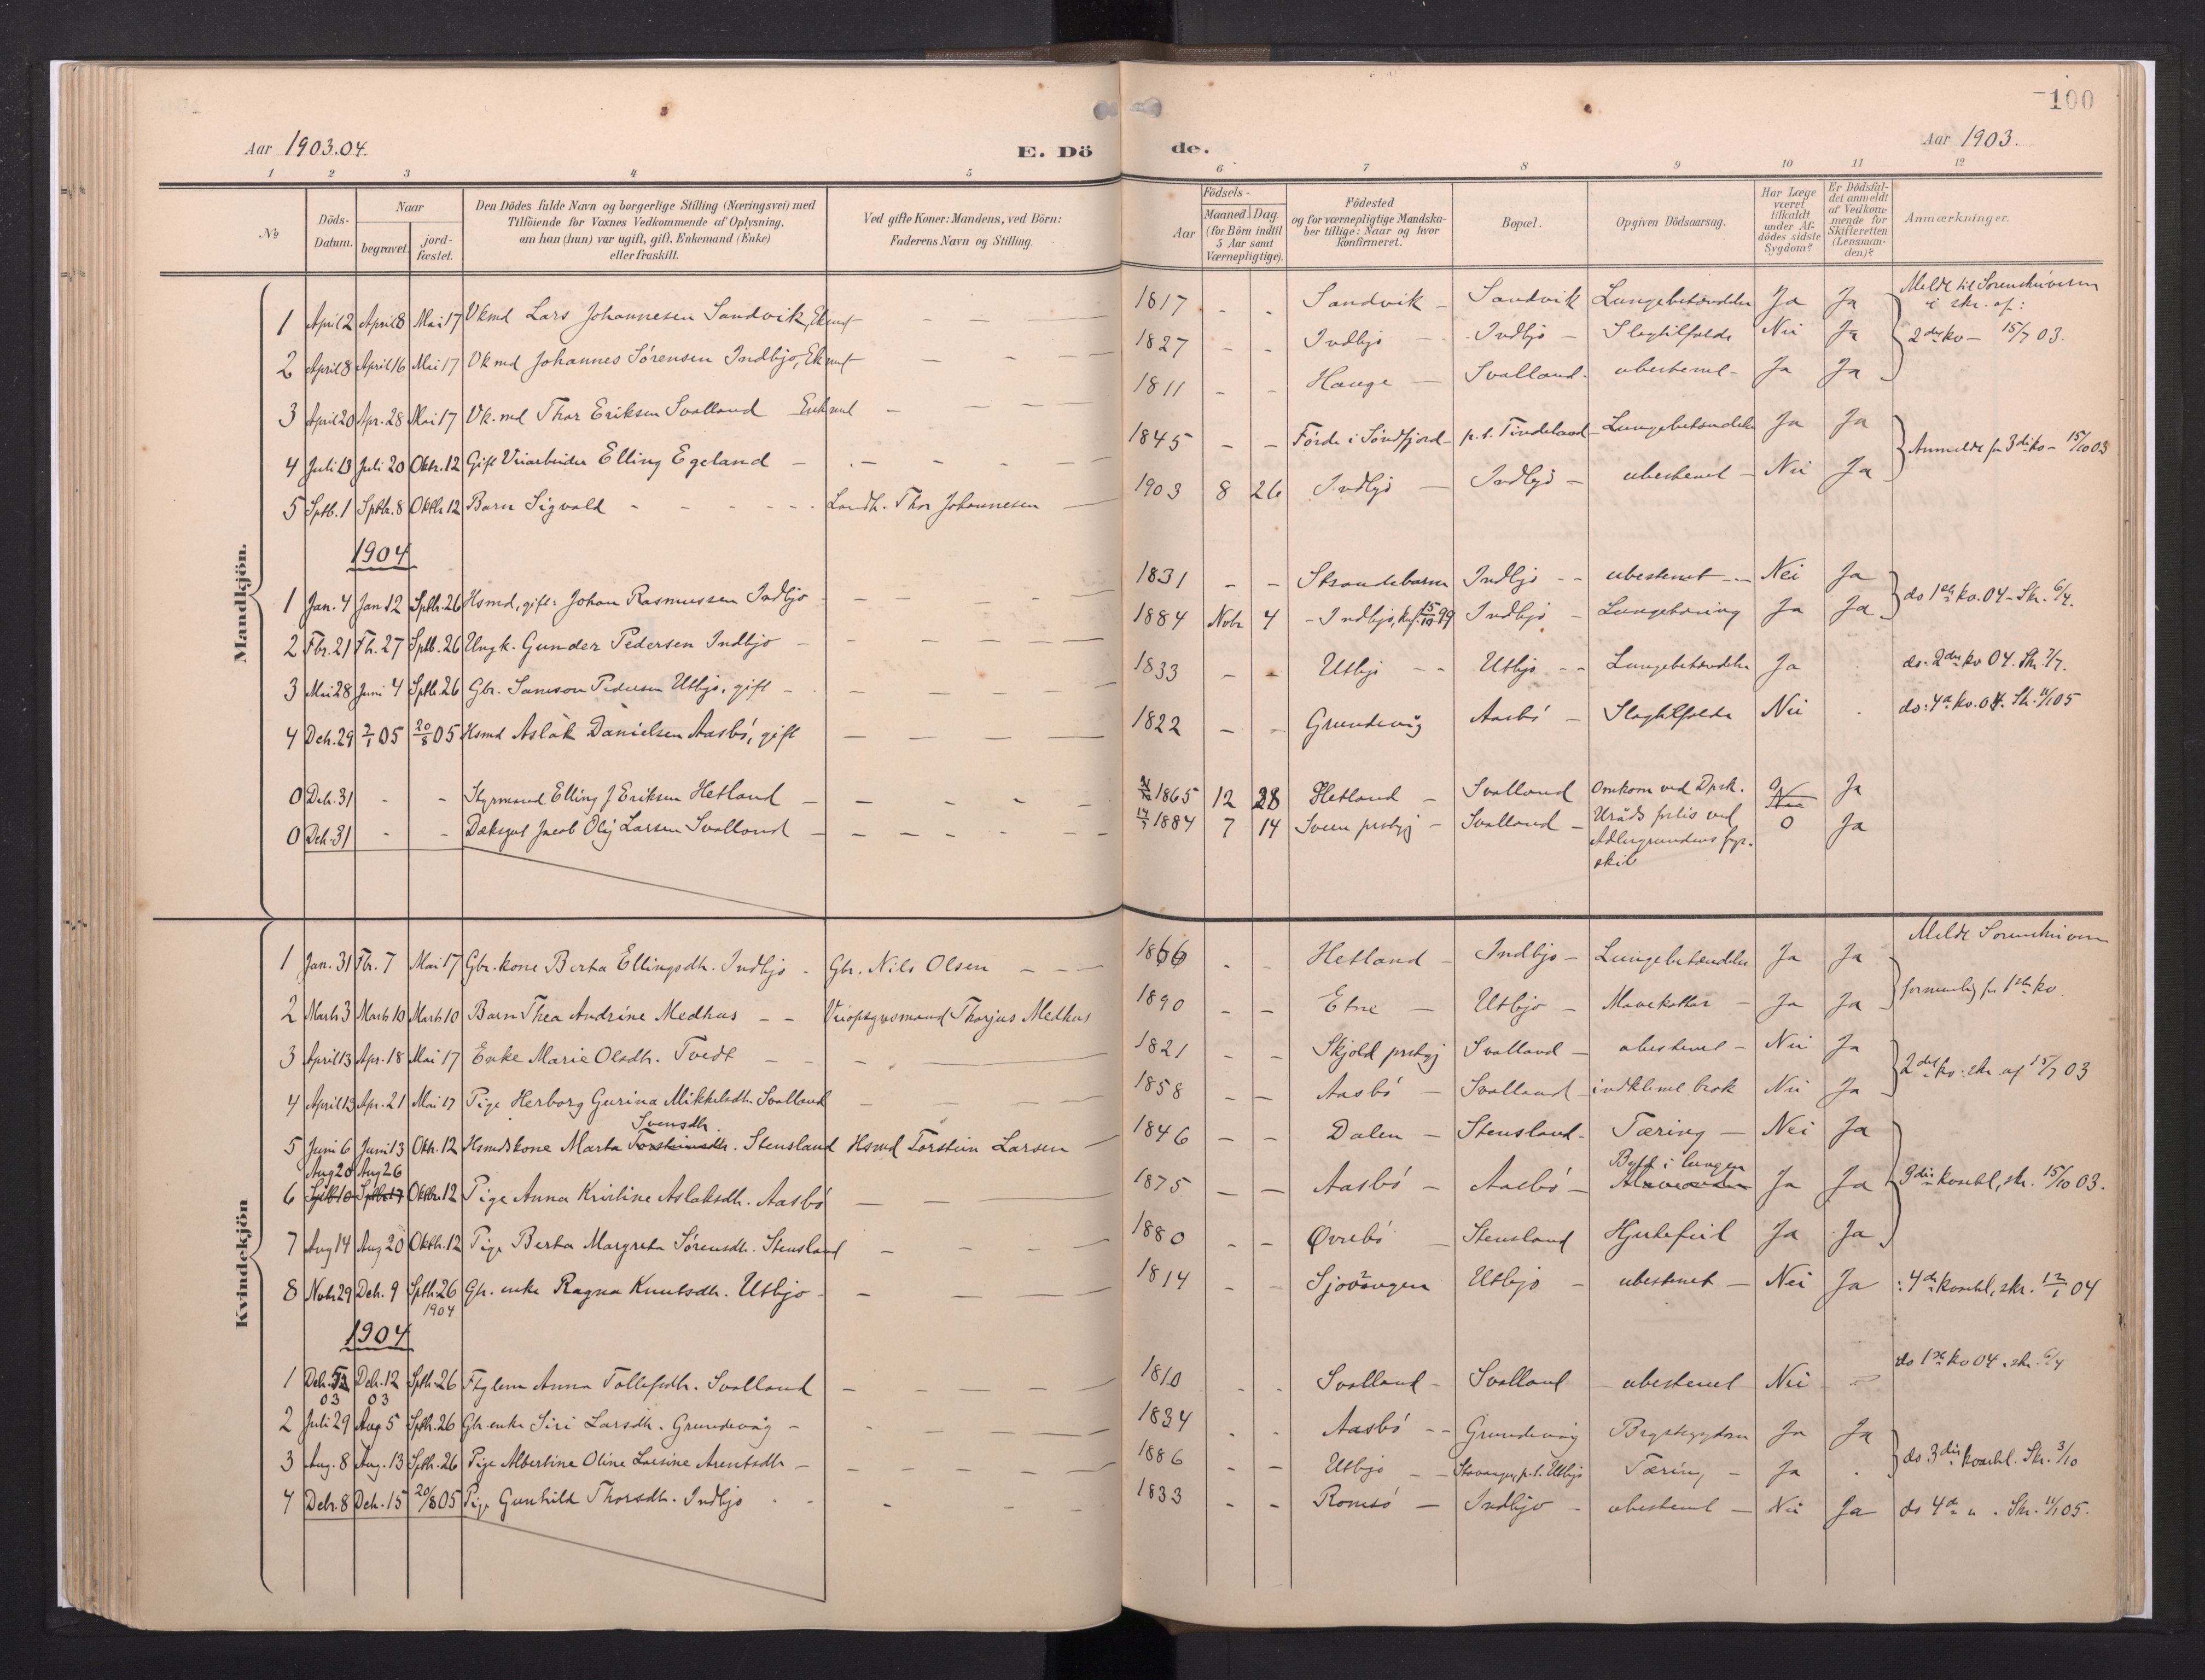 100
Aar 1903.04.
E. Dö
de.
Aar 1903.
1 2 3 4 5 6 7 8 9 10 11 12
№
Döds-Datum.
Naar
begravet.
jord-fæstet.
Den Dödes fulde Navn og borgerlige Stilling (Næringsvei) med
Tilföiende for Voxnes Vedkommende af Oplysning,
om han (hun) var ugift, gift, Enkemand (Enke)
eller fraskilt.
Ved gifte Koner: Mandens, ved Börn:
Faderens Navn og Stilling.
Födsels-
Aar
Maaned. Dag.
(for Börn indtil
5 Aar samt
Værnepligtige).
Födested
og for værnepligtige Mandska-
ber tillige: Naar og hvor
Konfirmeret.
Bopæl.
Opgiven Dödsaarsag.
Har Læge
været
tilkaldt
under Af-
dödes sidste
Sygdom?
Er Dödsfal-
det anmeldt
af Vedkom-
mende for
Skifteretten
(Lensman-
den)?
Anmærkninger.
Mandkjön.
Meldt til Sorenskriveren
i skr. af:
1 April 2 April 8 Mai 17 Vkmd Lars Johannesen Sandvik, Ekmt 1817 - - Sandvik - Sandvik Lungebetændelse Ja Ja
2 April 8 April 16 Mai 17 Vkmd Johannes Sörensen Indbjo, Ekmt 1827 - - Indbjo - Indbjo - Slagtilfælde Nei Ja 2det kv - 15/7 03.
3 April 20 Apr. 28 Mai 17 Vk.md Thor Eriksen Svalland Enkmd 1811 - - Hauge - Svalland - ubestemt - Ja Ja
4 Juli 13 Juli 20 Oktr. 12 Gift Veiarbeider Elling Egeland 1845 - - Förde i Söndfjord - p.t. Tindeland - Lungebetændelse Ja Ja Anmeldt for 3die kv - 15/10 03
5 Septb. 1 Septbr. 8 Oktbr. 12 Barn Sigvald - Landh. Thor Johannesen 1903 8 26 Indbjo - Indbjo - ubestemt - Nei Ja
1904
1 Jan. 4 Jan 12 Septbr. 26 Hsmd, gift: Johan Rasmussen Indbjo 1831 - - Strandebarm Indbjo - - ubestemt - Nei Ja do 1ste kv. 04 - Skr. 6/4.
2 Fbr. 21 Fb. 27 Septb. 26 Ungk. Gunder Pedersen Indbjo 1884 Nobr 4 - Indbjo, kf. 15/10 99 Indbjo - Lungetæring Ja Ja
3 Mai 28 Juni 4 Septb. 26 Gbr. Samson Pedersen Utbjo, gift - 1833 - - Utbjo - - Utbjo - - Lungebetændelse Ja do. 2det kv 04. Skr. 7/7.
4 Dcb. 29 2/1 05 20/8 05 Hsmd Aslak Danielsen Aasbö, gift 1822 - - Grundevåg Aasbö - Slagtilfælde Nei do: 4de kv. 04. Sk. 11/1 05
0 Dcb. 31 - - Styrmand Elling J Eriksen Hetland 1865 12 28 Hetland - Svalland Omkom ved Dpsk. Ja
0 Dcb. 31 - - Dæksgut Jacob Olaj Larsen Svalland 14/7 1884 7 14 Sveen prstgj - Svalland - Uräds forlis ved 0 Ja
Adlergrundens fyr-
skib
Kvindekjön
Meldt Sorenskriveren
1 Jan. 31 Fbr. 7 Mai 17 Gbr. kone Berta Ellingsdtr. Indbjo - Gbr. Nils Olsen 1866 - - Hetland - Indbjo - Lungebetændelse Ja Ja
2 Marts 3 Marts 10 Marts 10 Barn Thea Andrine Medhus - - Veiopsynsmand Thorjus Medhus 1890 - - Etne - Utbjo - Mavekatar - Ja Ja for 1ste kv.
3 April 13 Apr. 18 Mai 17 Enke Marie Olsdtr. Tvedt 1821 - - Skjold prstgj Svalland - ubestemt - Nei Ja 2det kv. skr. af 15/7 03
4 April 13 Apr. 21 Mai 17 Pige Herborg Gurina Mikkelsdtr. Svalland 1858 - - Aasbö - Svalland - indklemt brok Nei Ja
Svensdtr.
5 Juni 6 Juni 13 Oktr. 12 Hsmdskone Marta Torsteinsdtr. Stensland Hsmd Torstein Larsen 1846 - - Dalen - Stensland - Tæring - Nei Ja
Aug 20 Aug 26
Byld i lungen
6 Septb 10 Septbr 17 Oktbr. 12 Pige Anna Kristine Aslaksdtr. Aasbö 1875 - - Aasbö - Aasbö - Ja Ja 3die kvartal, skr. 15/10 03.
7 Aug 14 Aug 20 Oktb. 12 Pige Berta Margreta Sörensdtr. Stensland 1880 - - Øvrebö - Stensland Hjertefeil Ja Ja
8 Nobr 29 Dcb. 9 Septb. 26 Gbr. enke Ragna Knutsdtr. Utbjo - 1814 - - Sjovången Utbjo - ubestemt - Nei Ja : 4de kvartal, skr. 12/1 04
1904
1904
1 Dcb. 5 Dcb. 12 Septb. 26 Fttglem Anna Tollefsdtr. Svalland 1810 - - Svalland - Svalland - ubestemt Nei - do 1ste kv 04. skr. 6/4
03 03
2 Juli 29 Aug 5 Septb. 26 Gbr enke Siri Larsdtr. Grundevåg - 1834 - - Aasbö - - Grundevåg Brystsygdom Ja Ja
3 Aug. 8 Aug. 13 Septb. 26 Pige Albertine Oline Larsine Arentsdtr - 1886 - - Utbjo - - Stavanger, p.t. Utbjo Tæring - Ja . do 3die kvartal. Skr. 3/10
4 Debr. 8 Dcb. 15 20/8 05 Pige Gunhild Thorsdtr. Indbjo 1833 - - Romsö - Indbjo - ubestemt - Nei Ja do 4de " . Skr. 11/1 05.